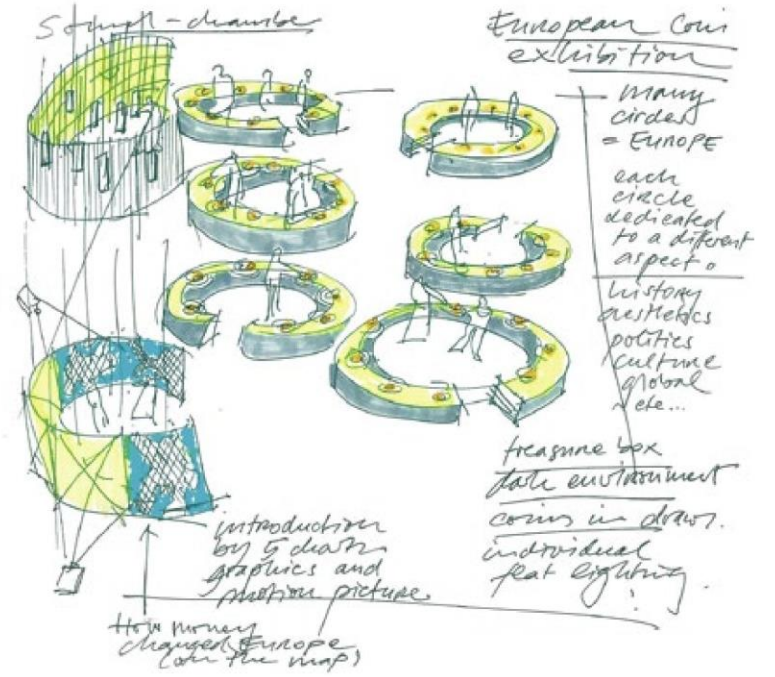 chamber
European Coin
exhibition
many
circles
= EUROPE
each
circle
dedicated
to a different
aspect.
history
aesthetics
politics
culture
global
etc...
treasure box
dark environment
coins in draws.
individual
lighting!
introduction
by 5
graphics and
motion picture.
How money
changed Europe
(on the map)